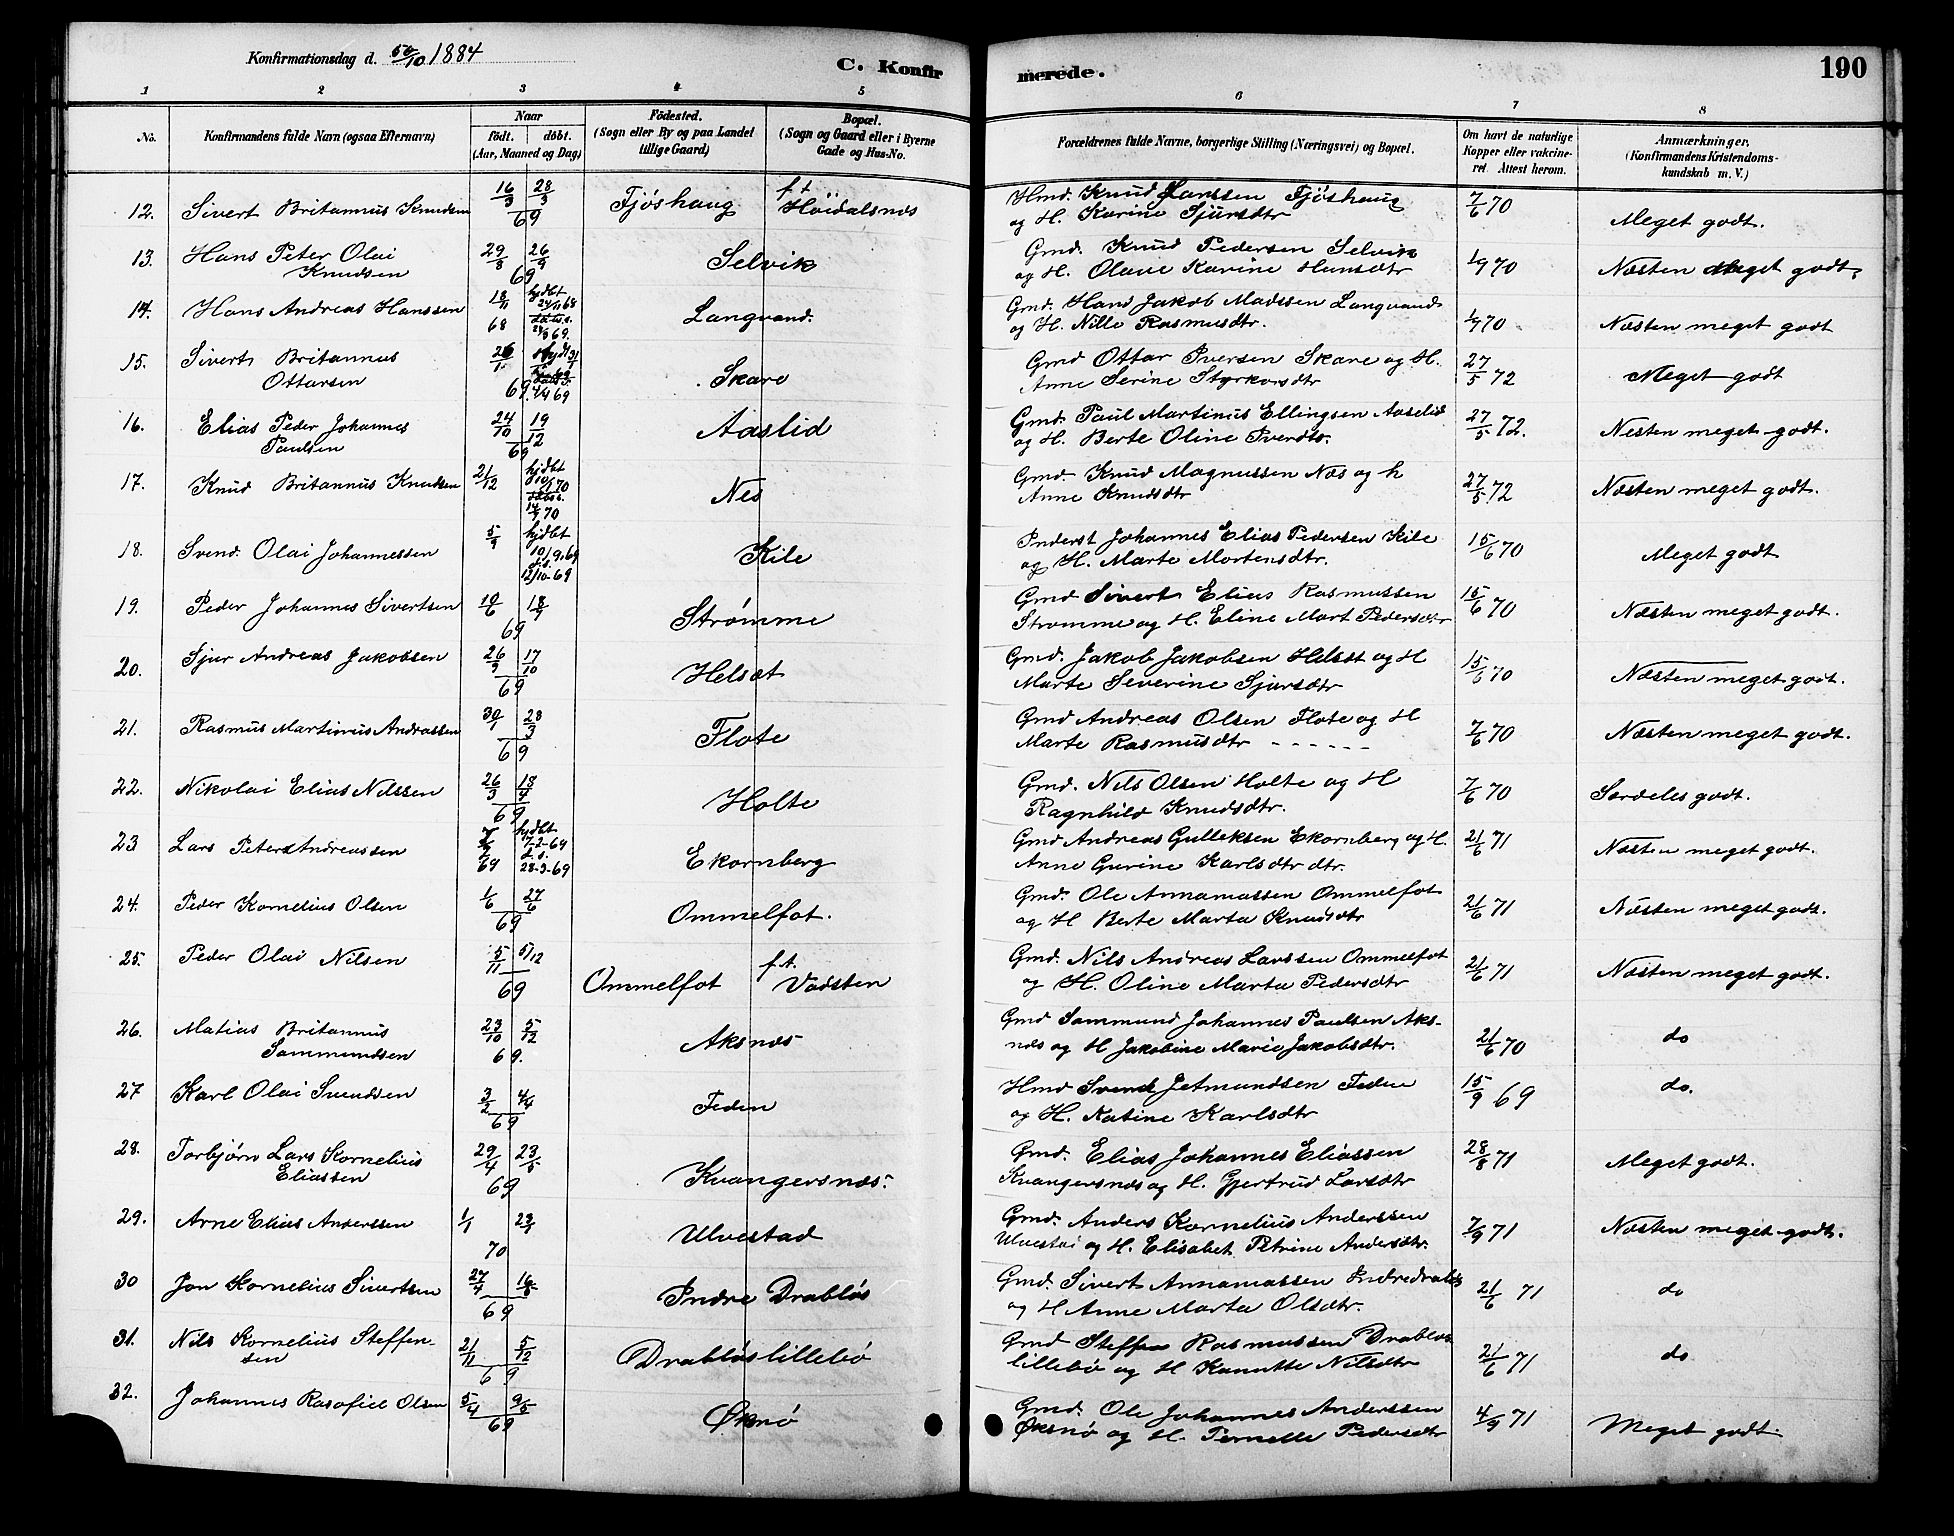 Konfirmationsdag d. 5/10 1884
C. Konfirmerede.
190
1 2 3 4 5 6 7 8
No.
Konfirmandens fulde Navn (ogsaa Efternavn)
Naar
födt. döbt.
(Aar, Maaned og Dag)
Födested.
(Sogn eller By og paa Landet
tillige Gaard)
Bopæl.
(Sogn og Gaard eller i Byerne
Gade og Hus-No.
Forældrenes fulde Navne, borgerlige Stilling (Næringsvei) og Bopæl.
Om havt de naturlige
Kopper eller vakcine-
ret. Attest herom.
Anmærkninger,
(Konfirmandens Kristendoms-
kundskab m. V.)
12. Sivert Britannus Knudsen 16/3 28/3 69 Fjøshaug f.t. Høidalsnæs Hmd. Knud Larssen Fjøshaug
og H. Karine Sjursdtr 7/6 70 Meget godt.
13. Hans Peter Olai
Knudsen 29/8 26/9 69 Selvik Gmd. Knud Pedersen Selvik
og H. Olave Karine Hansdtr 1/9 70 Næsten Meget godt.
14. Hans Andreas Hanssen 18/11 68 hjdbt 24/11 68 69. Langvand. Gmd. Hans Jakob Madssen Langvand
og H. Nille Rasmusdtr. 1/9 70 Næsten meget godt
15. Sivert Britannus
Ottarsen 26/1 69 hjdt 31/1 4/4 69 Skare Gmd Ottar Iversen Skare og H.
Anne Serine Styrkorsdtr 27/5 72 Meget godt
16. Elias Peder Johannes
Paulsen 24/10 19/12 69 Aaslid Gmd. Paul Martinus Ellingsen Aaselid
og H. Berte Oline Iverdtr. 27/5 72. Nesten meget godt.
17. Knud Britannus Knudsen 21/12 hjdbt 70 70 Nes Gmd. Knud Magnussen Næs og h
Anne Knudsdtr 27/5 72 Næsten meget godt.
18. Svend Olai Johannessen 5/9 hjdbt 10/9.69 d.s. 12/10-69 Kile Inderst Johannes Elias Pedersen Kile
og H. Marte Mortensdtr. 15/6 70 Meget godt
19. Peder Johannes Sivertsen 10/6 18/7 69 Strømme Gmd Sivert Elias Rasmussen
Strømme og H. Eline Mart Pedersdtr 15/6 70 Næsten meget godt.
20. Sjur Andreas Jakobsen 26/9 17/10 69 Helsæt Gmd. Jakob Jakobsen Helset og H
Marte Severine Sjursdtr 15/6 70 Næsten meget godt.
21. Rasmus Martinus Andrassen 30/1 28/3 69 Flote Gmd Andreas Olsen Flote og H
Marte Rasmusdtr - - - - - - 7/6 70 Næsten meget godt.
22. Nikolai Elias Nilssen 26/3 18/4 69 Holte Gmd. Nils Olsen Holte og H
Ragnhild Knudsdtr. 7/6 70 Særdeles godt.
23 Lars Peter Andreassen 69 hjdbt 7-2-69 d.s. 28-3-69 Ekornberg Gmd Andreas Gulleksen Ekornberg og H.
Anne Gurine Karlsdtr dtr. 21/6 71 Næsten meget godt.
24. Peder Kornelius Olsen 1/6 27/6 69 Ommelfot. Gmd. Ole Annamassen Ommelfot
og H Berte Marta Knudsdtr 21/6 71 Næsten meget godt.
25. Peder Olai Nilsen 5/11 5/12 69 Ommelfot f.t. Vadsten Gmd. Nils Andreas Larssen Ommelfot
og H. Oline Marta Pedersdtr 21/6 71 Næsten meget godt.
26. Matias Britannus
Sammundsen 23/10 5/12 69. Aksnæs Gmd Sammund Johannes Paulsen Aks-
næs og H Jakobine Marie Jakobsdtr. 21/6 70 do
27 Karl Olai Svendsen 3/2 4/4 69 Feden Hmd Svend Jetmundsen Feden
og H. Natine Karlsdtr 15/9 69 do.
28. Torbjørn Lars Kornelius
Eliassen 29/4 23/5 69 Kvangersnæs. Gmd. Elias Johannes Eliassen
Kvangersnæs og H. Gjertrud Larsdtr 28/8 71 Meget godt.
29. Arne Elias Anderssen 1/1 23/1 70 Ulvestad Gmd. Anders Kornelius Anderssen
Ulvestad og H. Elisabet Petrine Andersdtr. 7/9 71 Næsten meget godt.
30 Jon Kornelius Sivertsen 27/4 16/5 69 Indre Drabløs Gmd. Sivert Annamassen Indredrabløs
og H Anne Marta Olsdtr. 21/6 71 do
31. Nils Kornelius Steffen-
sen 21/11 5/12 69 Drabløslillebø Gmd Steffen Rasmussen Drabløs
lillebø og H Kanutte Nilsdtr 21/6 71 do
32. Johannes Rasofiel Olsen 5/4 9/5 69 Øksnø Gmd. Ole Johannes Anderssen
Øksnø og H. Pernelle Pedersdtr 4/9 71 Meget godt.